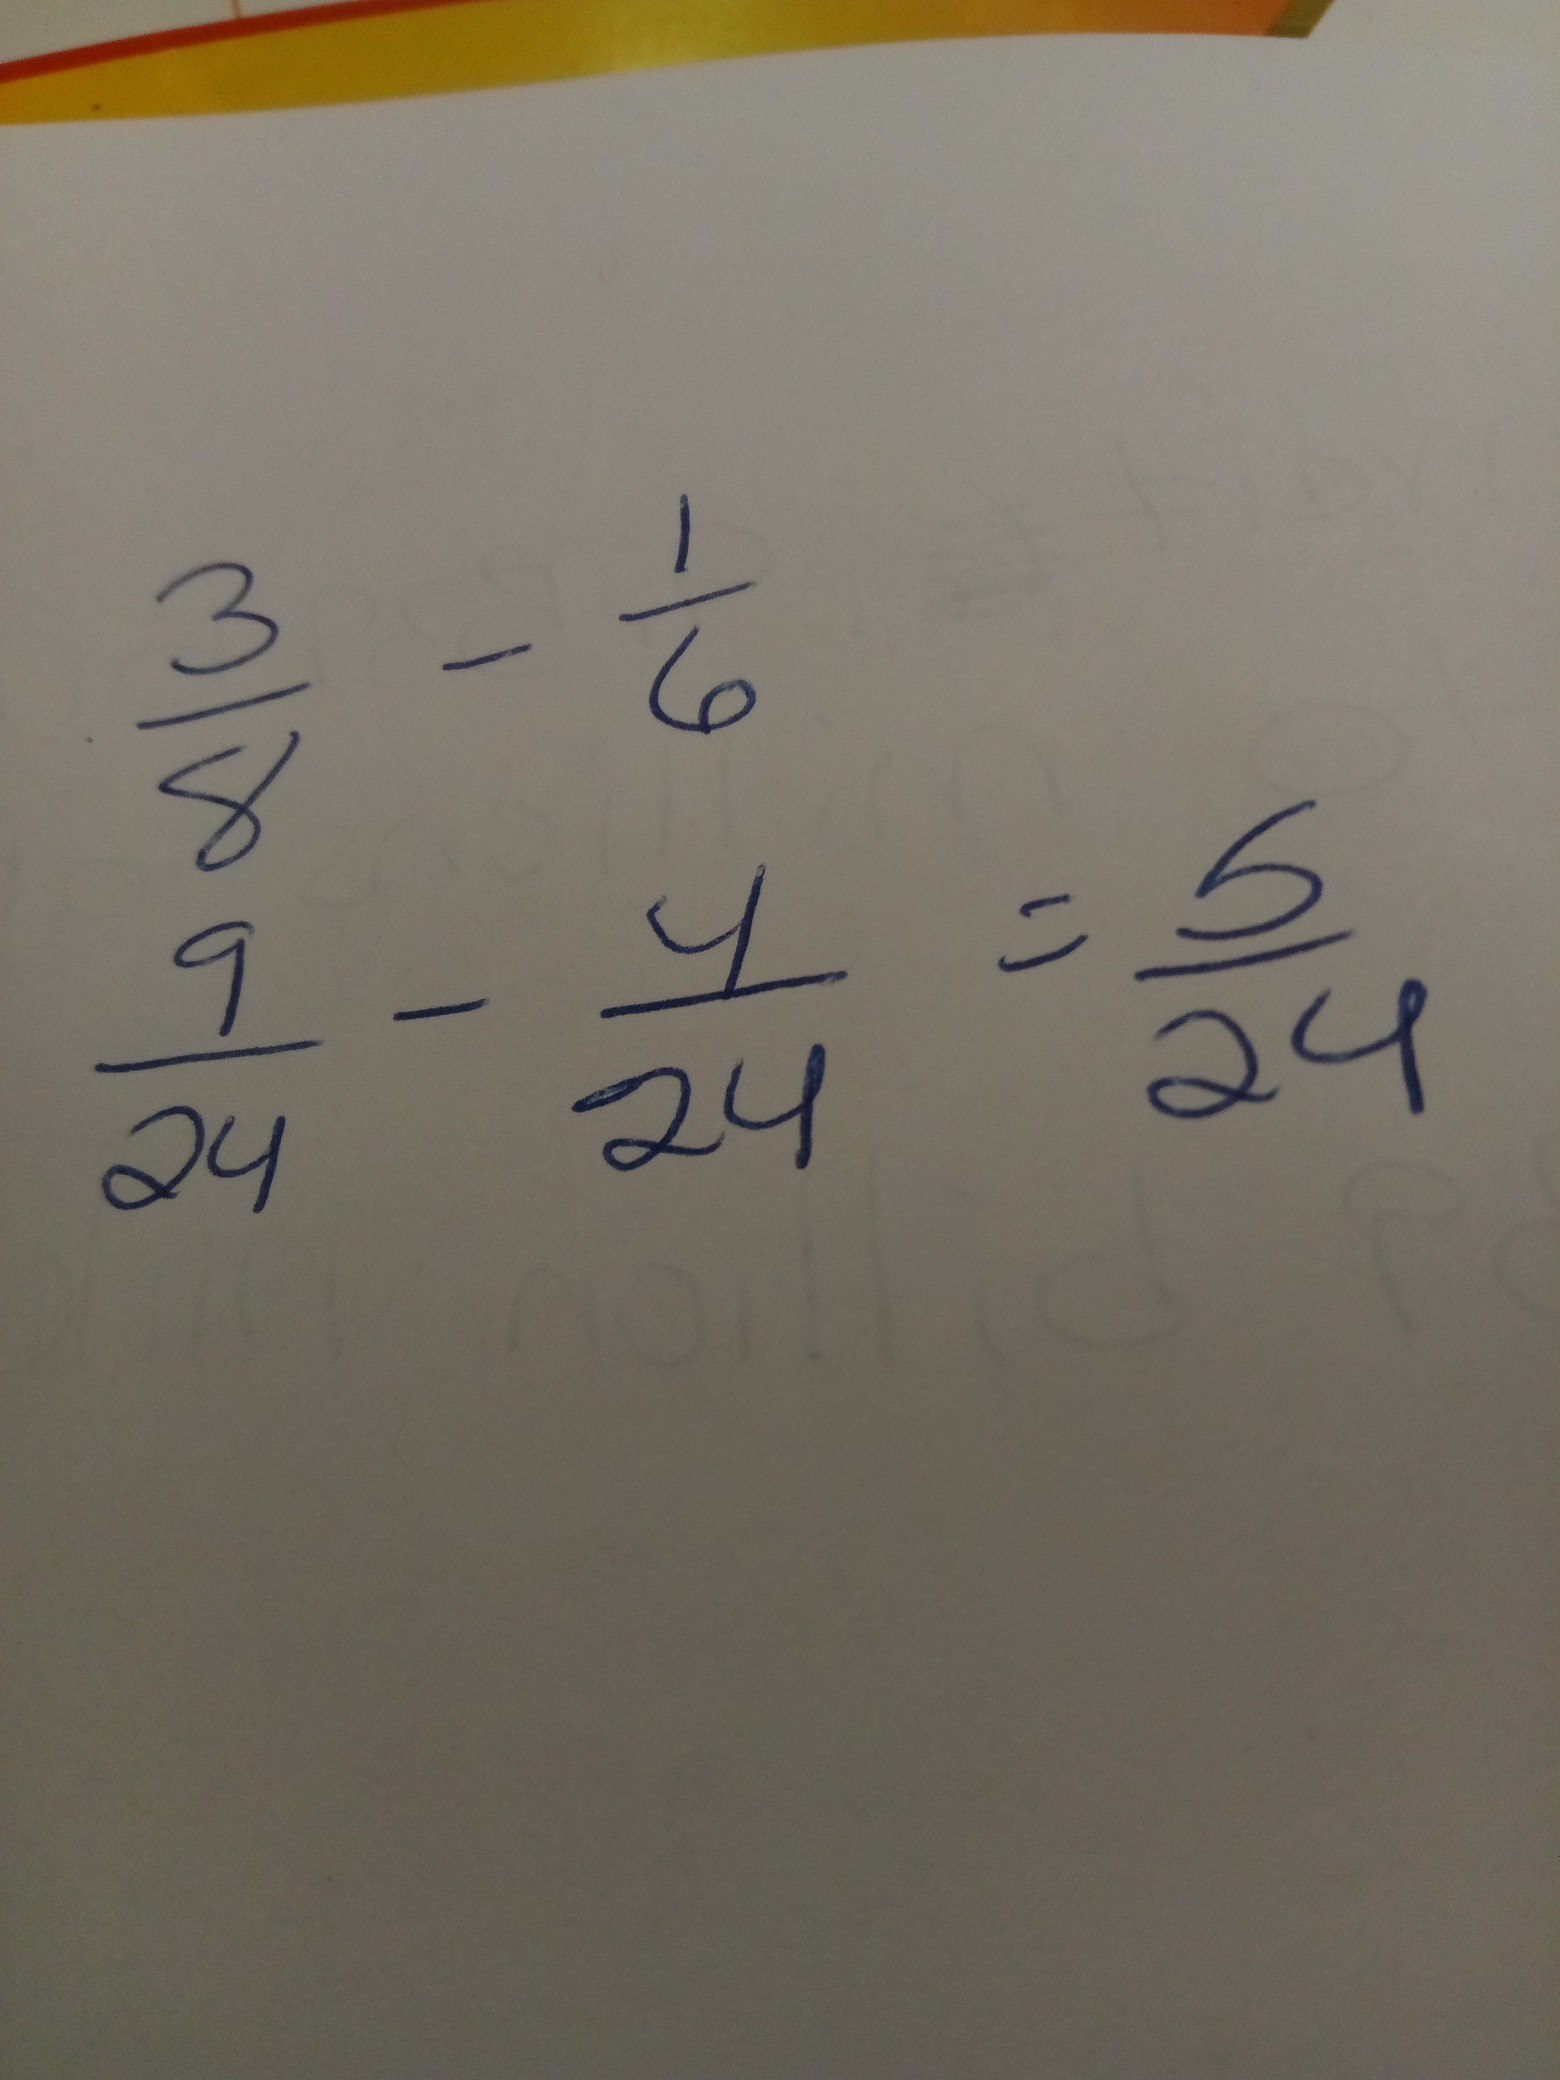 3/8 - 1/6
9/24 - 4/24 = 5/24